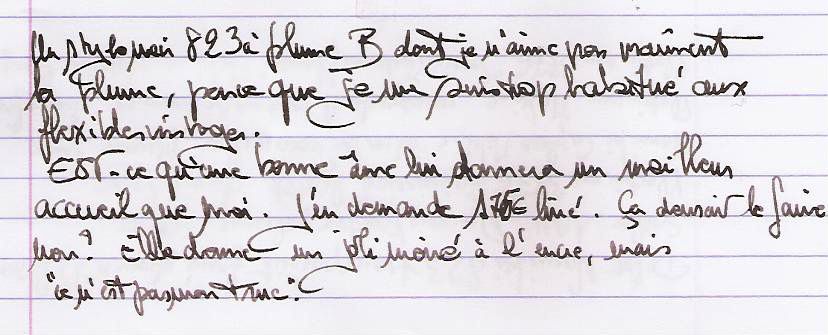 Un stylo noir 823 à plume B dont je n'aime pas vraiment
la plume, parce que je me suis trop habitué aux
flexibles vintages.
EST-ce qu'une bonne âme lui donnera un meilleur
accueil que moi. J'en demande 175€ liné. Ça devrait le faire
non? Elle donne un joli moiré à l'encre, mais
"ce n'est pas mon truc".